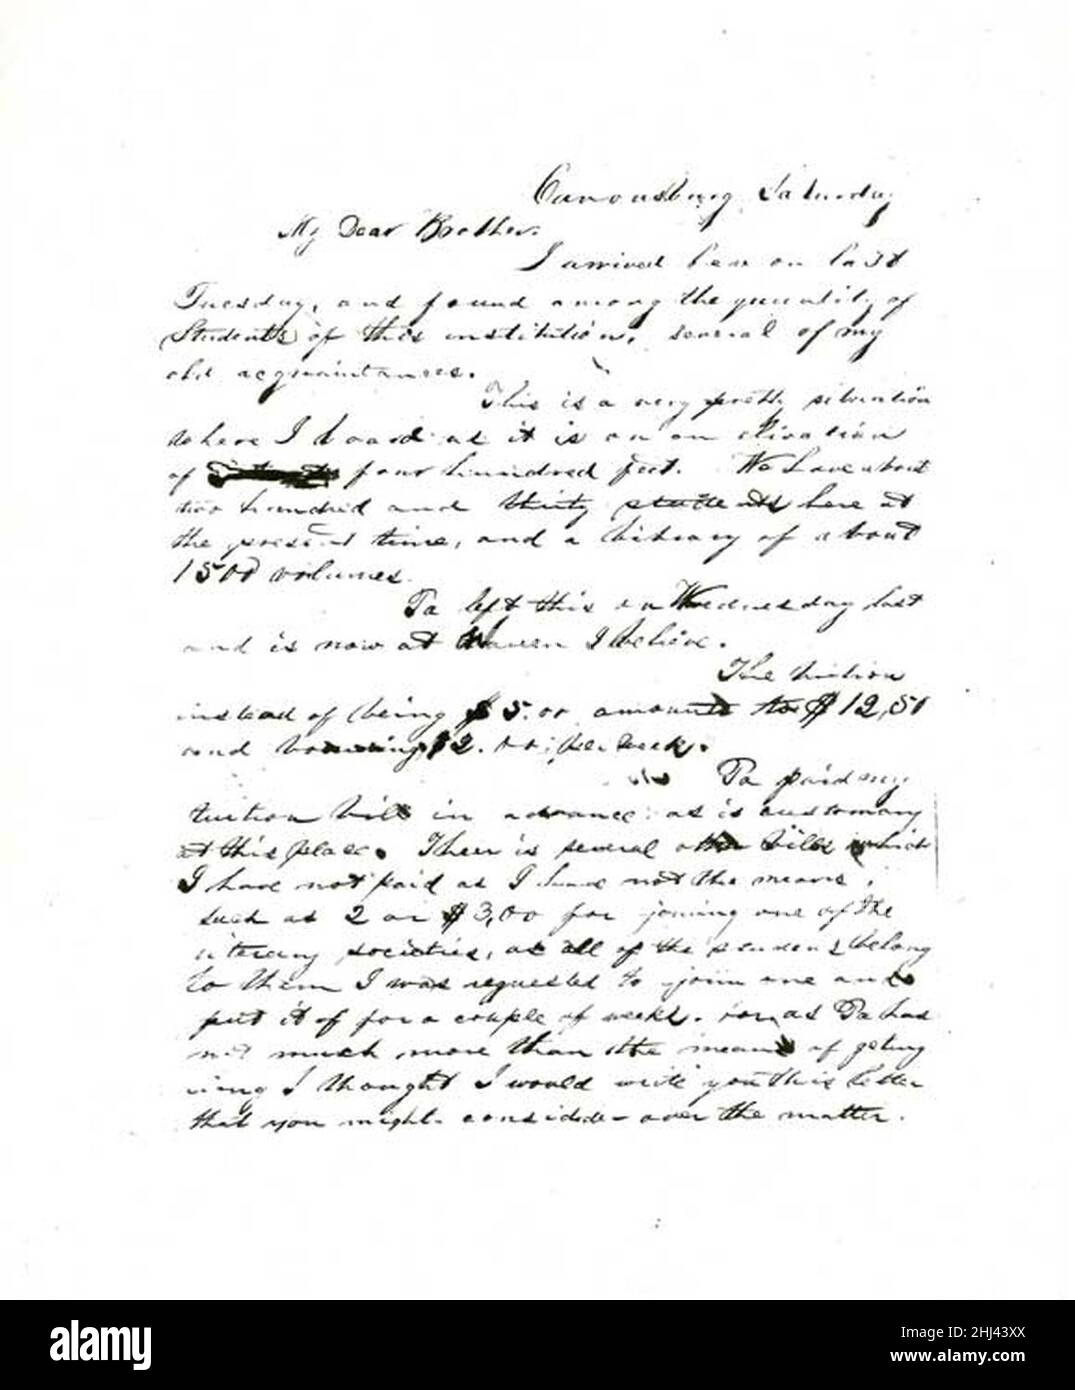 Canonsburg Saturday
My Dear Brother.
I arrived here on last
Tuesday, and found among the quantity of
Students of this institution, several of my
old acquaintances.
This is a very pretty situation
where I board as it is on an elivation
of four hundred feet. We have about
two hundred and thirty students here at
the present time, and a library of about
1500 volumes.
Pa left this on Wednesday last
and is now at Warren I believe.
The tuition
instead of being $5.00 amounts to $12,50
and boarding $2.00 per week.
Pa paid my
tuition bill in advance as is customary
at this place. Theer is several other bills which
I have not paid as I have not the means,
such as 2 or $3,00 for joining one of the
literary societies, as all of the students belong
to them I was requested to join one and
put it of for a couple of weeks. as Pa has
not much more than the means of geting
I thought I would write you this letter
that you might consider over the matter.
alamy
Image ID: 2HJ43XX
www.alamy.com